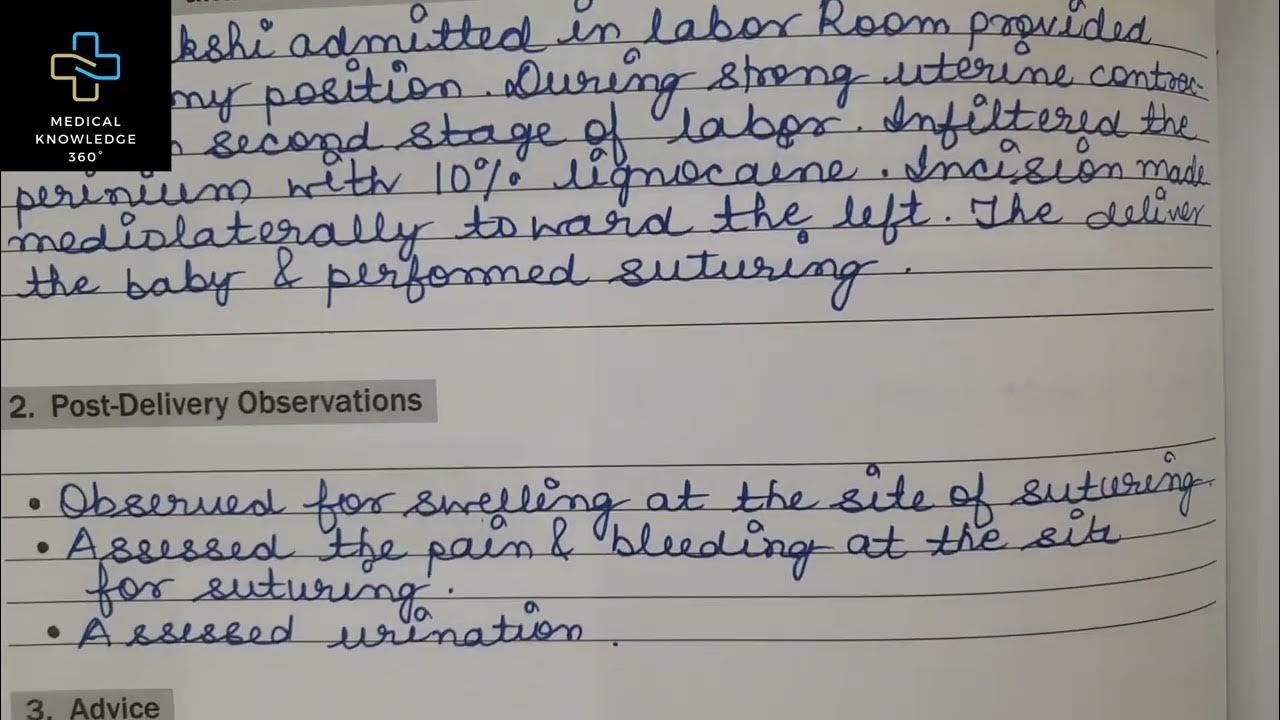 kshi admitted in labor Room provided
my position. During strong uterine contrac-
second stage of labor. Infiltered the
MEDICAL
KNOWLEDGE
360°
perinium with 10% lignocaene. Incision made
mediolaterally toward the left. The deliver
the baby & performed suturing.
2. Post-Delivery Observations
• Observed for swelling at the site of suturing.
• Assessed the pain & bleeding at the site
for suturing.
• Assessed urination.
3. Advice